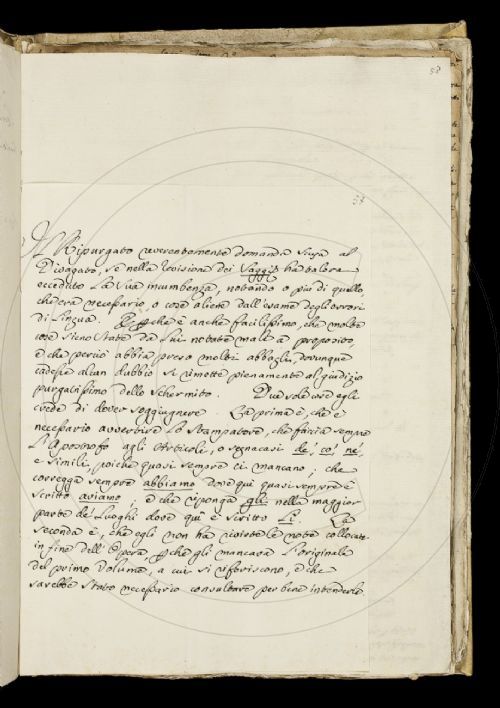 58
57
Il Ripurgato reverentemente domanda scusa al
Divagato, se nella revisione dei Saggi ha talora
ecceduto la sua incumbenza, notando o più di quello,
che era necessario o cose aliene dall'esame degli errori
di Lingua. E pche è anche facilissimo, che molte
cose sieno state da lui notate male a proposito,
e che perciò abbia preso molti abbagli, dovunque
cadesse alcun dubbio si rimette pienamente al giudizio
purgatissimo dello Schermito. Due sole cose egli
crede di dover soggiugnere. La prima è, che è
necessario avvertire lo Stampatore, che faccia sempre
l'Apostrofo agli Articoli, o segnacasi de', co', ne',
e simili, poiche quasi sempre ci mancano; che
corregga sempre abbiamo dove quì quasi sempre è
scritto aviamo; e che riponga gli nella maggior
parte de' Luoghi dove quì è scritto Li. La
seconda è, che egli non ha riviste le note collocate
in fine dell'Opera, pche gli mancava l'originale
del primo Volume, a cui si riferiscono, e che
sarebbe stato necessario consultare per bene intenderle.